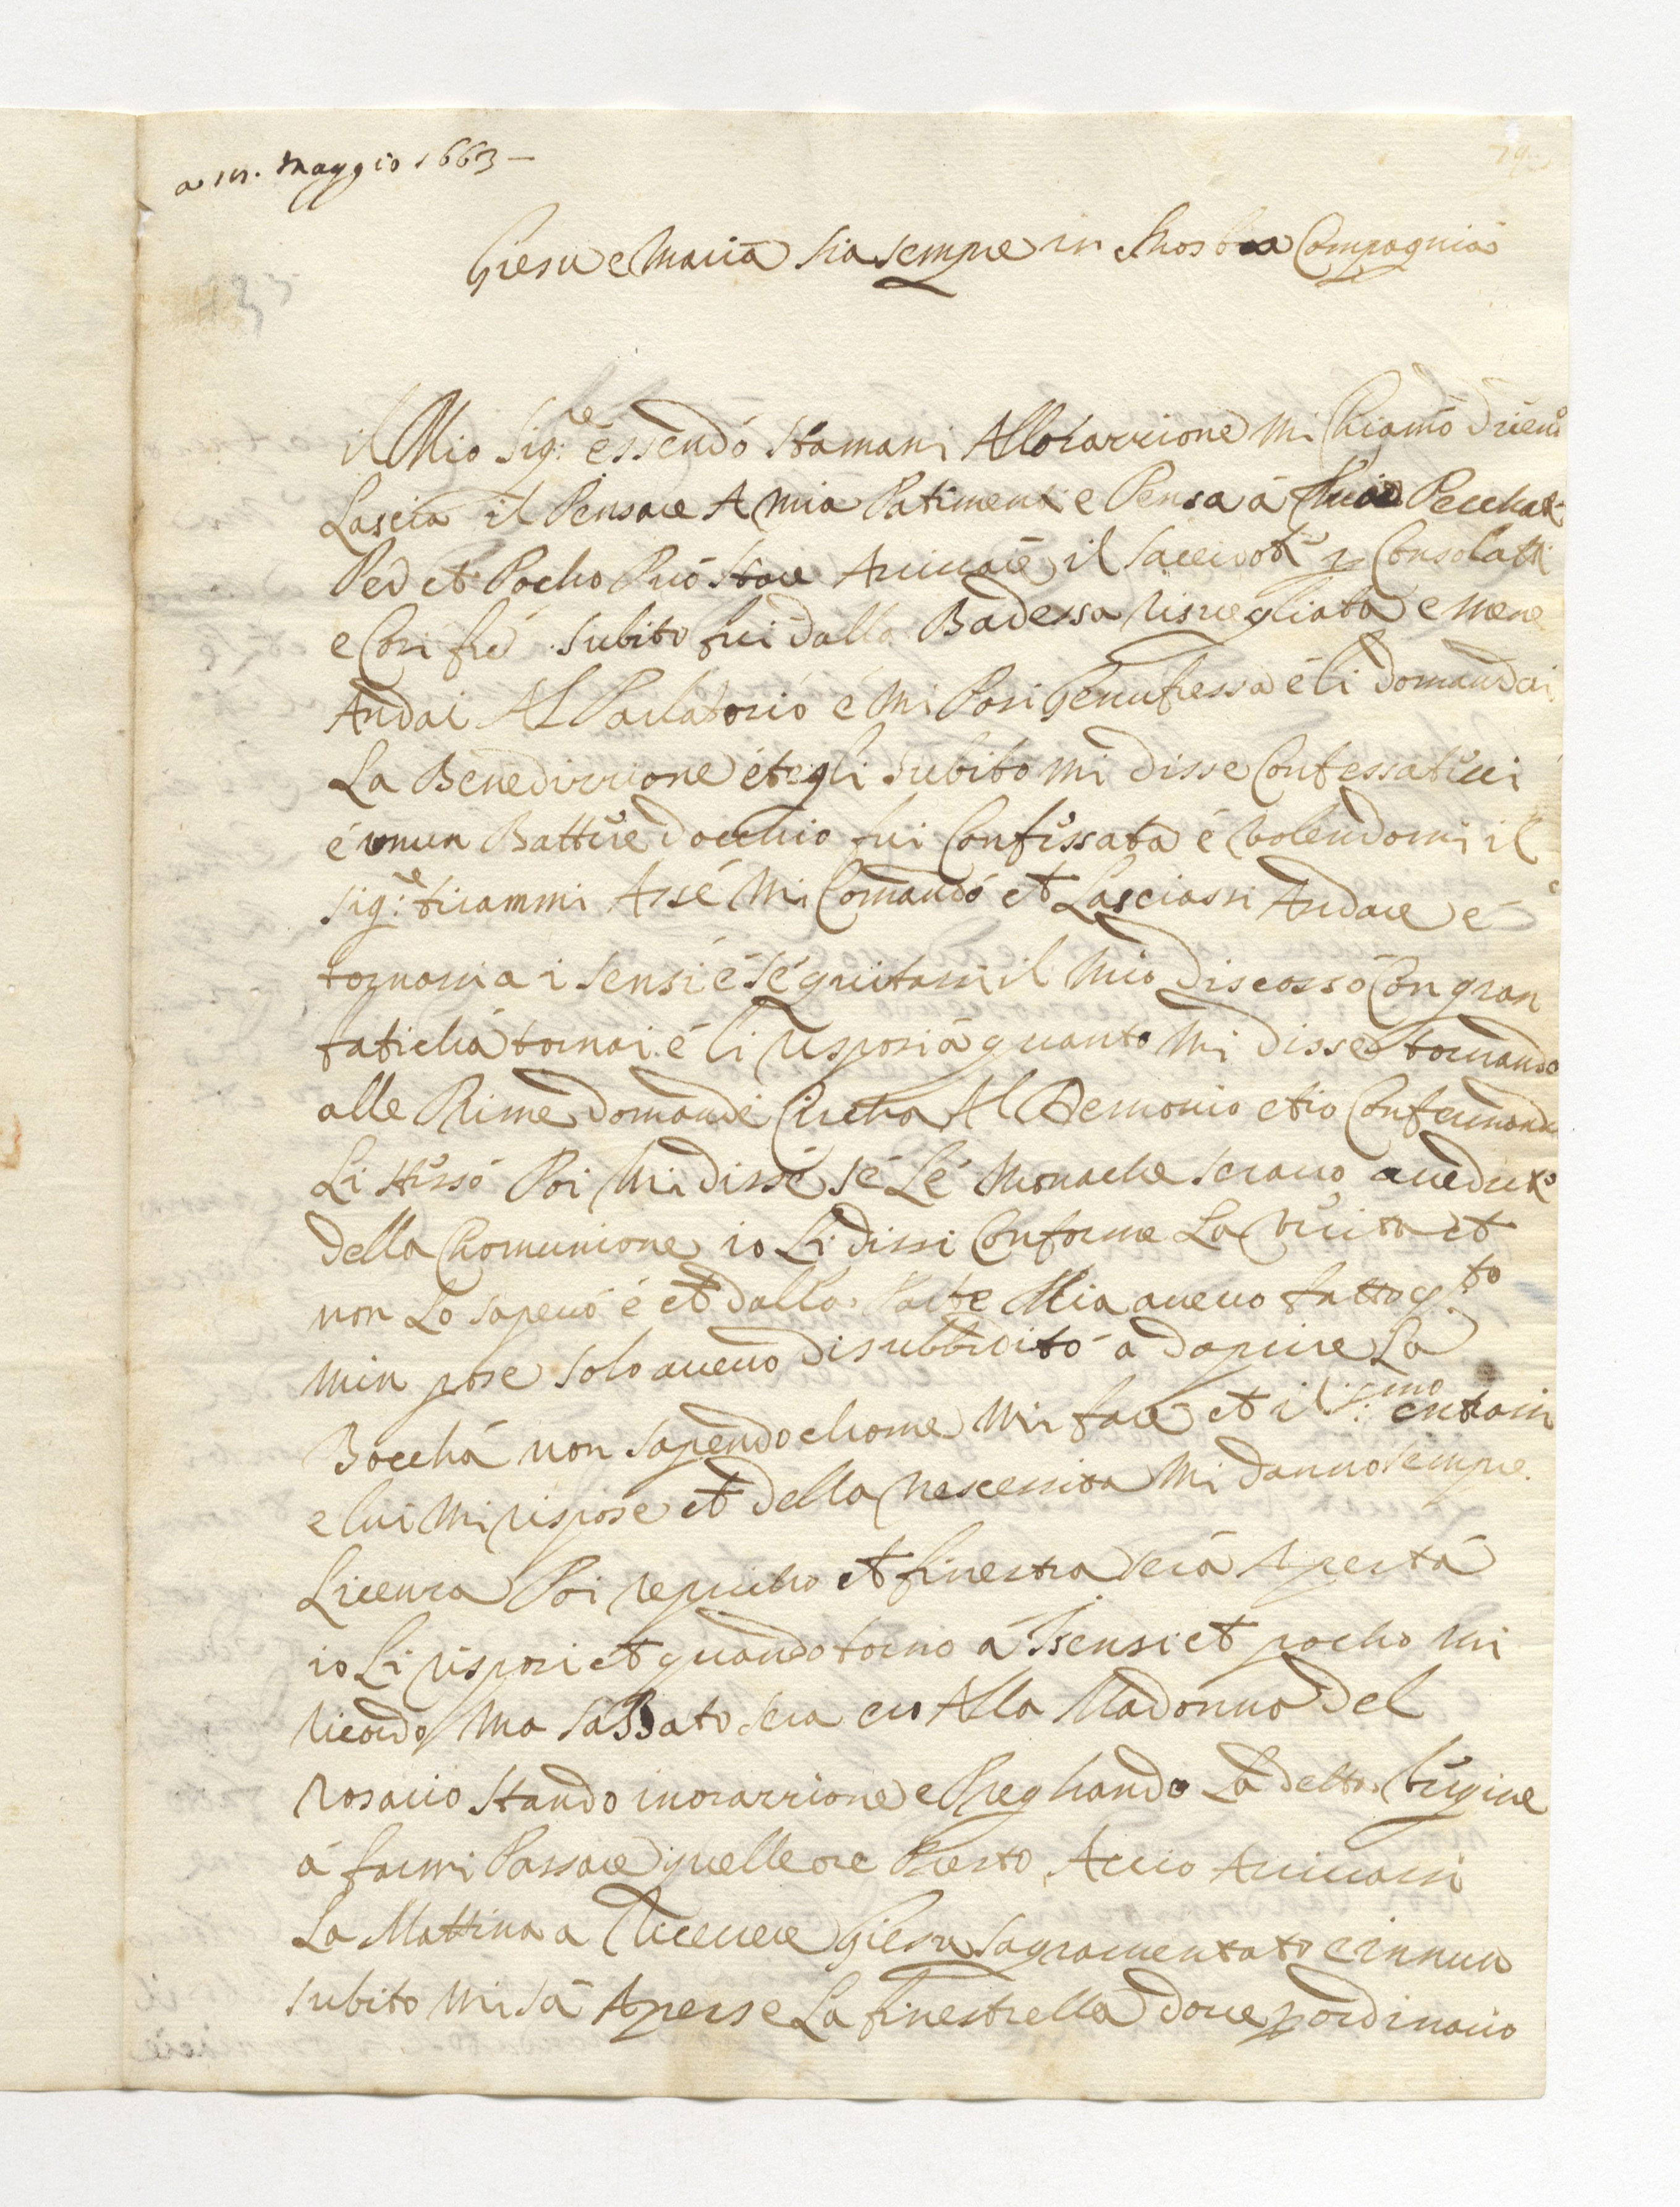 a 14. Maggio 1663 –
Giesu e Maria sia sempre in Nostra Compagnia
il Mio Sig.re essendo stamani Allorazzione mi Chiamo
Lascia il Pensare A mia Patimenti e Pensa a tuoi Pecchati
Per ch Pocho Può stare Arrivare il Sacerdote p Consolatti
e Cosi fu subito fui dalla Badessa Risvegliata e mene
Andai Al Parlatorio e mi Posi Genufressa e li domandai
La Benedizzione et egli subito mi disse Confessativi
é innun Batture docchio fui Confessata é volendomi il
sig.re tirammi Assé Mi Comandó ch Lasciassi Andare é
tornassi a i sensi é séguitassi il mio discorsso Con gran
faticha tornai é li risposi á quanto mi disse tornando
alle Prime domande Circha Al Demonio et io Confermando
Li stesso Poi Mi dissé sé Lé Monache serano avedute
della Chomunione io Li dissi Conforme La verita ch
non Lo sapevo é ch dalla Parte Mia avevo fatto q.to
min pose solo avevo disubbidito a daprire La
Boccha non sapendo chome mi fare ch il S.mo entrassi
e lui Mi rispose ch della Nescessita Mi danno sempre
Licenza Poi repricho ch finestra sera Aperta
io Li risposi ch quando torno á i sensi ch pocho mi
ricordo Ma Sabbato sera ero Alla Madonna del
Rosario stando inorazzione e Preghando La detta Vergine
á farmi Passare quelle ore Presto Accio Arrivassi
La Mattina a Ricevere Giesu Sagramentato e innun
subito mi sá Aperse La finestrella dove p ordinario